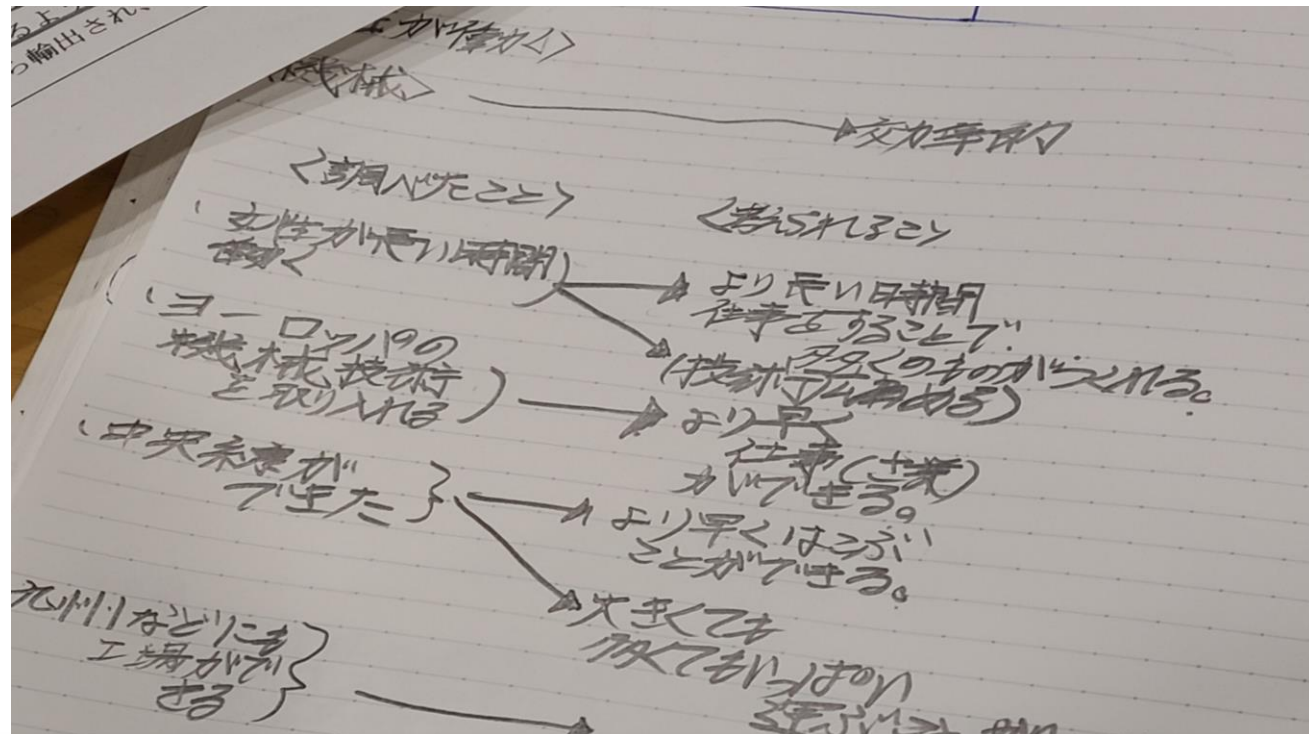 るよ
ら輸出され、
が働く〉
機械〉 → 効率的
〈調べたこと〉
〈考えられること〉
・女性が長い時間
働く
より長い時間
仕事をすることで、
多くのものがつくれる。
(技術
・ヨーロッパの
機械、技術
を取り入れる
より早く
仕事(
ができる。
・中央線が
できた
より早くはこぶ
ことができる。
大きくても
多くてもいっぱい
運ぶこと
九州などにも
工場がで
きる